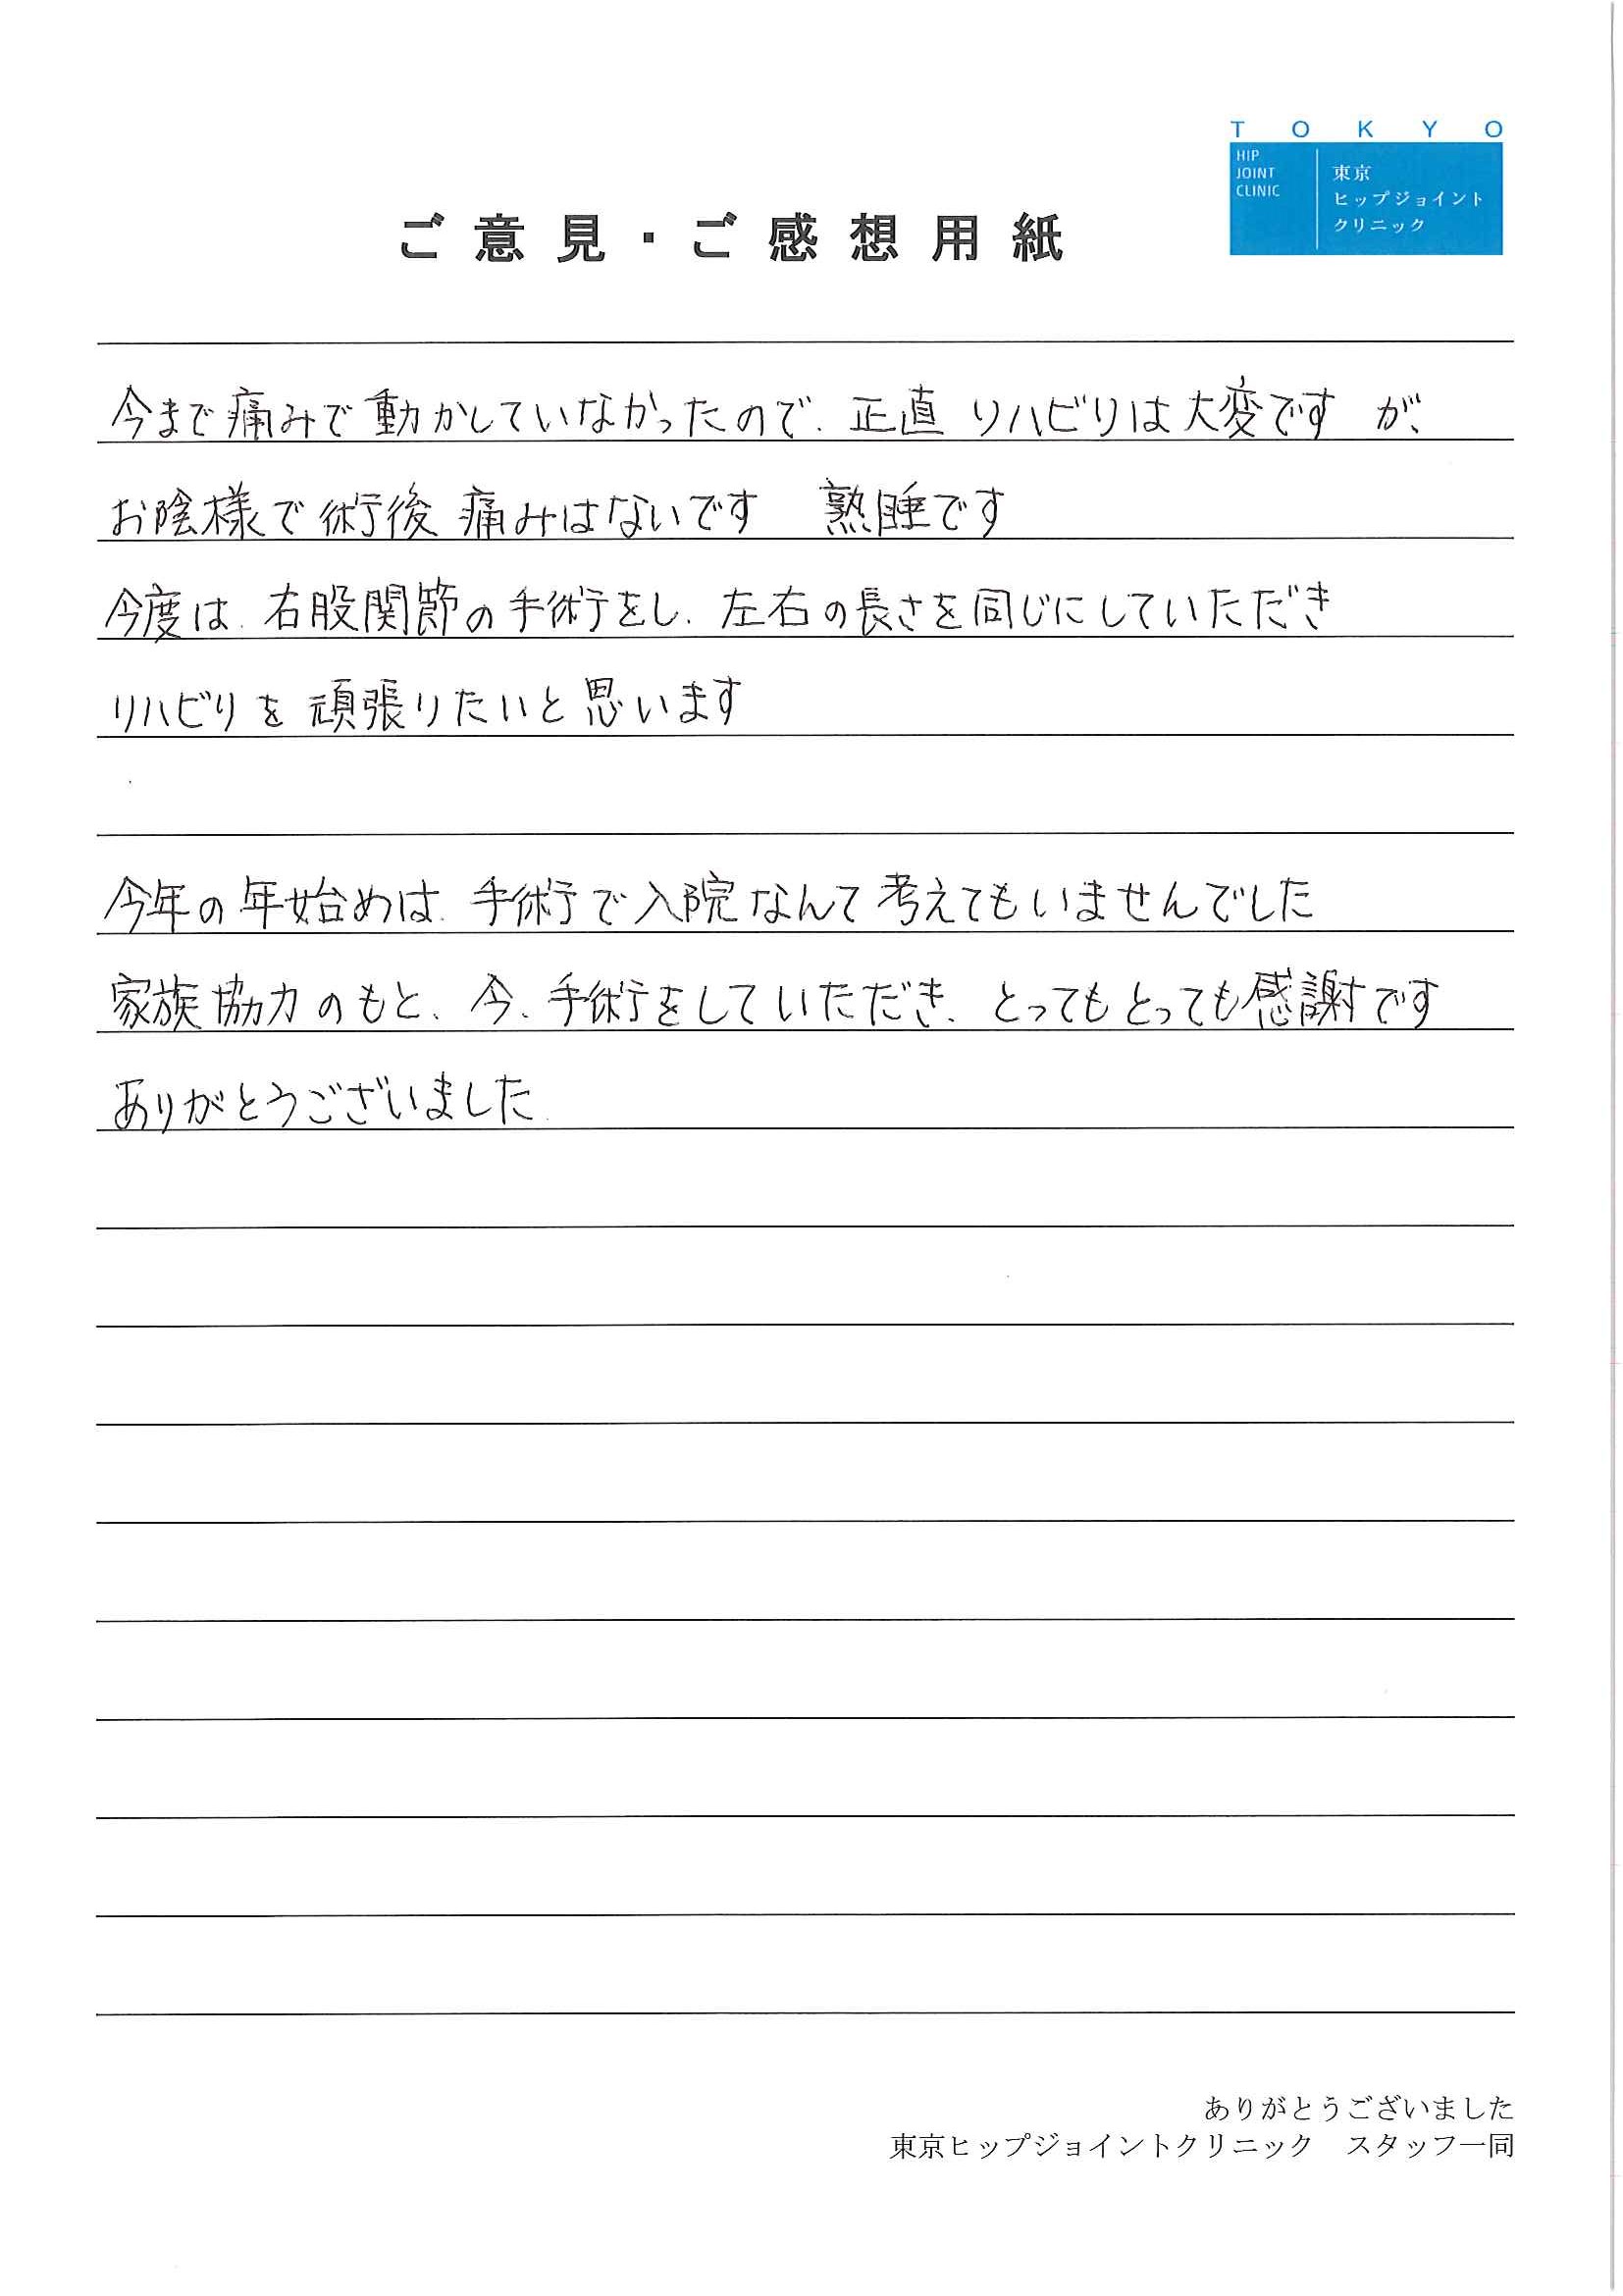 TOKYO
HIP
JOINT
CLINIC
東京
ヒップジョイント
クリニック
ご意見・ご感想用紙
今まで痛みで動かしていなかったので、正直リハビリは大変です が、
お陰様で術後痛みはないです 熟睡です
今度は、右股関節の手術をし、左右の長さを同じにしていただき
リハビリを頑張りたいと思います
今年の年始めは、手術で入院なんて考えてもいませんでした
家族協力のもと、今、手術をしていただき、とってもとっても感謝です
ありがとうございました
ありがとうございました
東京ヒップジョイントクリニック スタッフ一同